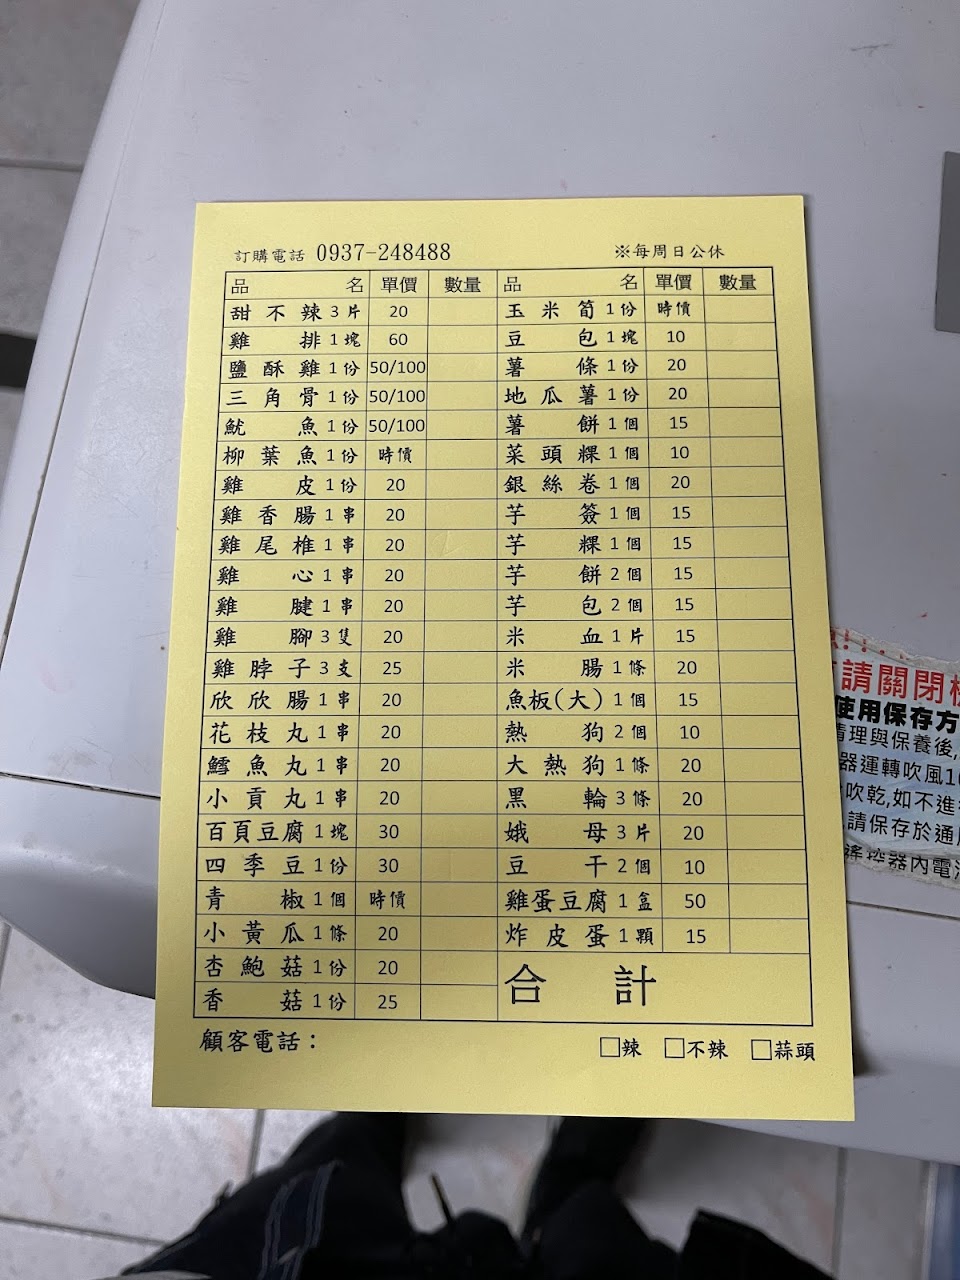 訂購電話 0937-248488 ※每周日公休
品名 單價 數量 品名 單價 數量
甜不辣3片 20 玉米筍1份 時價
雞排1塊 60 豆包1塊 10
鹽酥雞1份 50/100 薯條1份 20
三角骨1份 50/100 地瓜薯1份 20
魷魚1份 50/100 薯餅1個 15
柳葉魚1份 時價 菜頭粿1個 10
雞皮1份 20 銀絲卷1個 20
雞香腸1串 20 芋簽1個 15
雞尾椎1串 20 芋粿1個 15
雞心1串 20 芋餅2個 15
雞腱1串 20 芋包2個 15
雞腳3隻 20 米血1片 15
雞脖子3支 25 米腸1條 20
欣欣腸1串 20 魚板(大)1個 15
花枝丸1串 20 熱狗2個 10
鱈魚丸1串 20 大熱狗1條 20
小貢丸1串 20 黑輪3條 20
百頁豆腐1塊 30 娥母3片 20
四季豆1份 30 豆干2個 10
青椒1個 時價 雞蛋豆腐1盒 50
小黃瓜1條 20 炸皮蛋1顆 15
杏鮑菇1份 20 合計
香菇1份 25
顧客電話： □辣 □不辣 □蒜頭
請關閉
使用保存方
清理與保養後,
器運轉吹風10
吹乾,如不進
請保存於通
遙控器內電